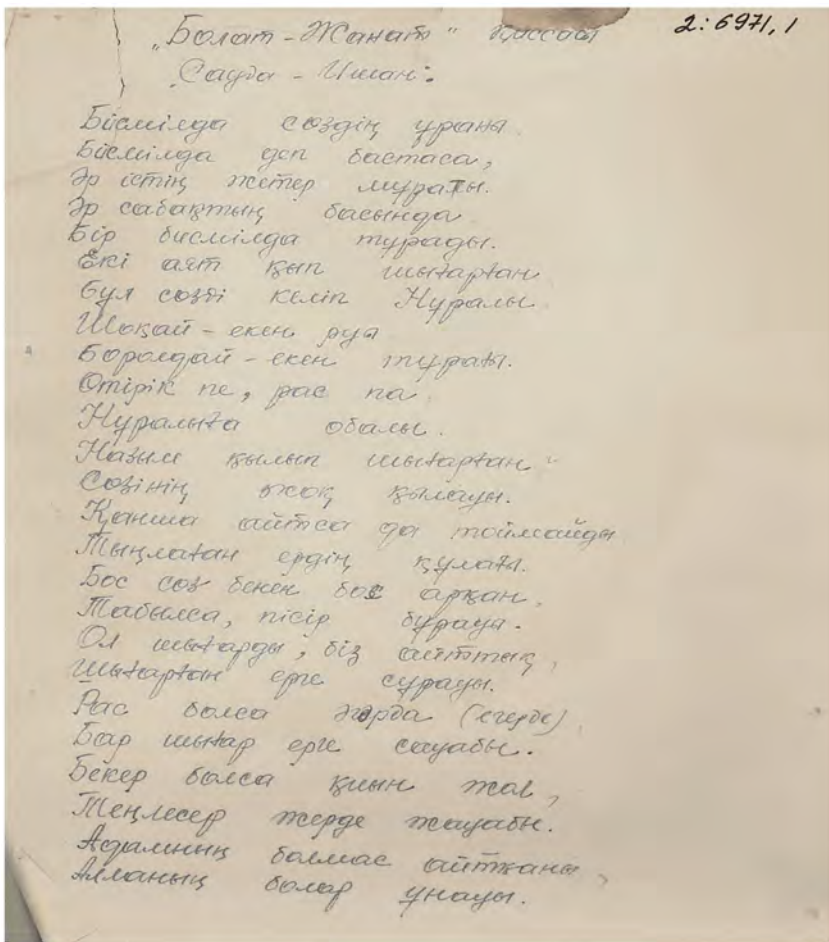 „Болат-Жанат" қиссасы 2:6971,1
„Сауда-Иман".
Бисмілда создің ураны
Бисмілда деп бастаса,
Әр істің жетер мұраты.
Әр сабақтың басында
Бір бисмілда тұрады.
Екі аят қып шығарған
Бұл созді келіп Нұралы.
Шоқай-екен руы
Боролдай-екен тұрағы.
Отірік пе, рас па
Нұралыға обалы.
Назым қылып шығарған
Созінің жоқ қылауы.
Қанша айтса да тоймайды
Тыңлаған ердің құлағы.
Бос соз бенен бос арқан,
Табылса, пісір бұрауы.
Ол шығарды, біз айттық,
Шығарған ерге сұрауы.
Рас болса әгәрда (егерде)
Бар шығар ерге сауабы.
Бекер болса қиын жол,
Теңлесер жерде жауабы.
Адамның болмас айтқаны,
Алланың болар ұнауы.